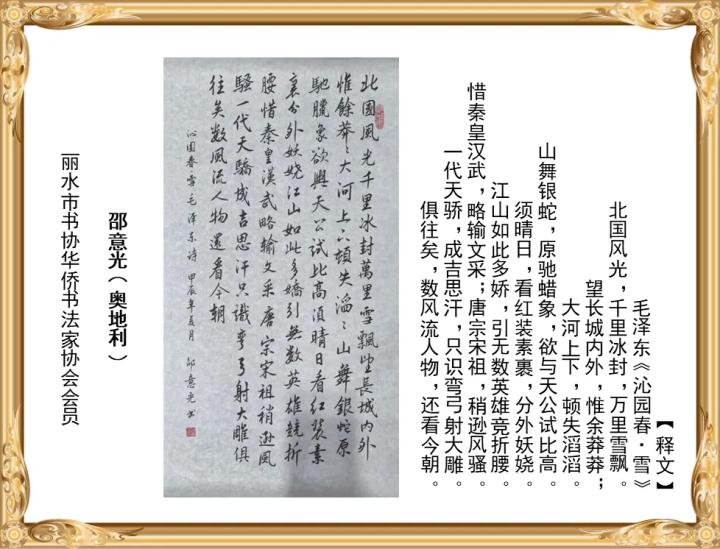 【释文】
毛泽东《沁园春·雪》
北国风光，千里冰封，万里雪飘。
望长城内外，惟余莽莽；
大河上下，顿失滔滔。
山舞银蛇，原驰蜡象，欲与天公试比高。
须晴日，看红装素裹，分外妖娆。
江山如此多娇，引无数英雄竞折腰。
惜秦皇汉武，略输文采；唐宗宋祖，稍逊风骚。
一代天骄，成吉思汗，只识弯弓射大雕。
俱往矣，数风流人物，还看今朝。
北國風光千里冰封萬里雪飄望長城內外
惟餘莽〻大河上下頓失滔〻山舞銀蛇原
馳臘象欲與天公試比高須晴日看紅裝素
裹分外妖嬈江山如此多嬌引無數英雄競折
腰惜秦皇漢武略输文采唐宗宋祖稍遜風
騷一代天驕成吉思汗只識彎弓射大雕俱
往矣數風流人物還看今朝
沁園春雪毛泽东诗 甲辰年夏月 邵意光书
邵意光（奥地利）
丽水市书协华侨书法家协会会员